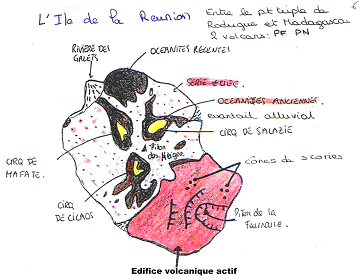 L'Ile de la Reunion
Entre le pt triple de
Rodrigue et Madagascar
2 volcans: PF PN
6
RIVIÈRE DES
GALETS
OCEANITES RECENTES
OCEANITES ANCIENNES
éventail alluvial
CIRQ DE SALAZIE
CIRQ DE
MAFATE
Piton
des Neiges
cônes de scories
CIRQ
DE CILAOS
Piton de la
Fournaise
Edifice volcanique actif